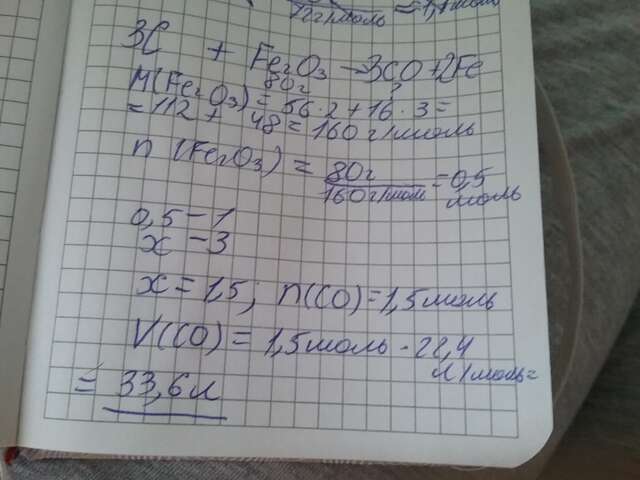 72г/моль = 1,1 моль
3C + Fe₂O₃ → 3CO + 2Fe
80г ?
M(Fe₂O₃) = 56·2 + 16·3 =
= 112 + 48 = 160 г/моль
n (Fe₂O₃) = 80г / 160 г/моль = 0,5 моль
0,5 – 1
x – 3
x = 1,5; n(CO) = 1,5 моль
V(CO) = 1,5 моль · 22,4 л/моль =
= 33,6 л